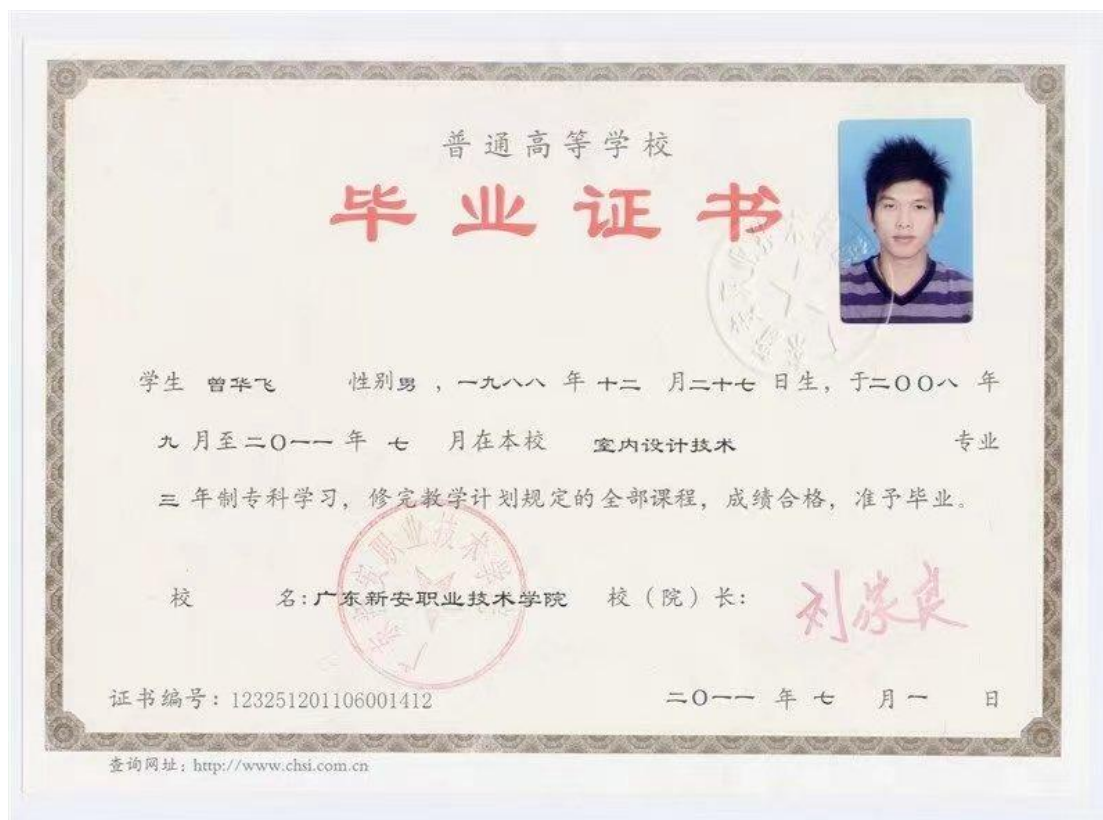 普通高等学校
毕业证书
学生 曾华飞 性别男 ，一九八八 年 十二 月二十七 日生，于二OO八 年
九 月至二O一一 年 七 月在本校 室内设计技术 专业
三 年制专科学习，修完教学计划规定的全部课程，成绩合格，准予毕业。
校 名:广东新安职业技术学院 校（院）长: 刘家良
广东新安职业技术学院
证书编号：123251201106001412 二O一一 年 七 月 一 日
查询网址：http://www.chsi.com.cn